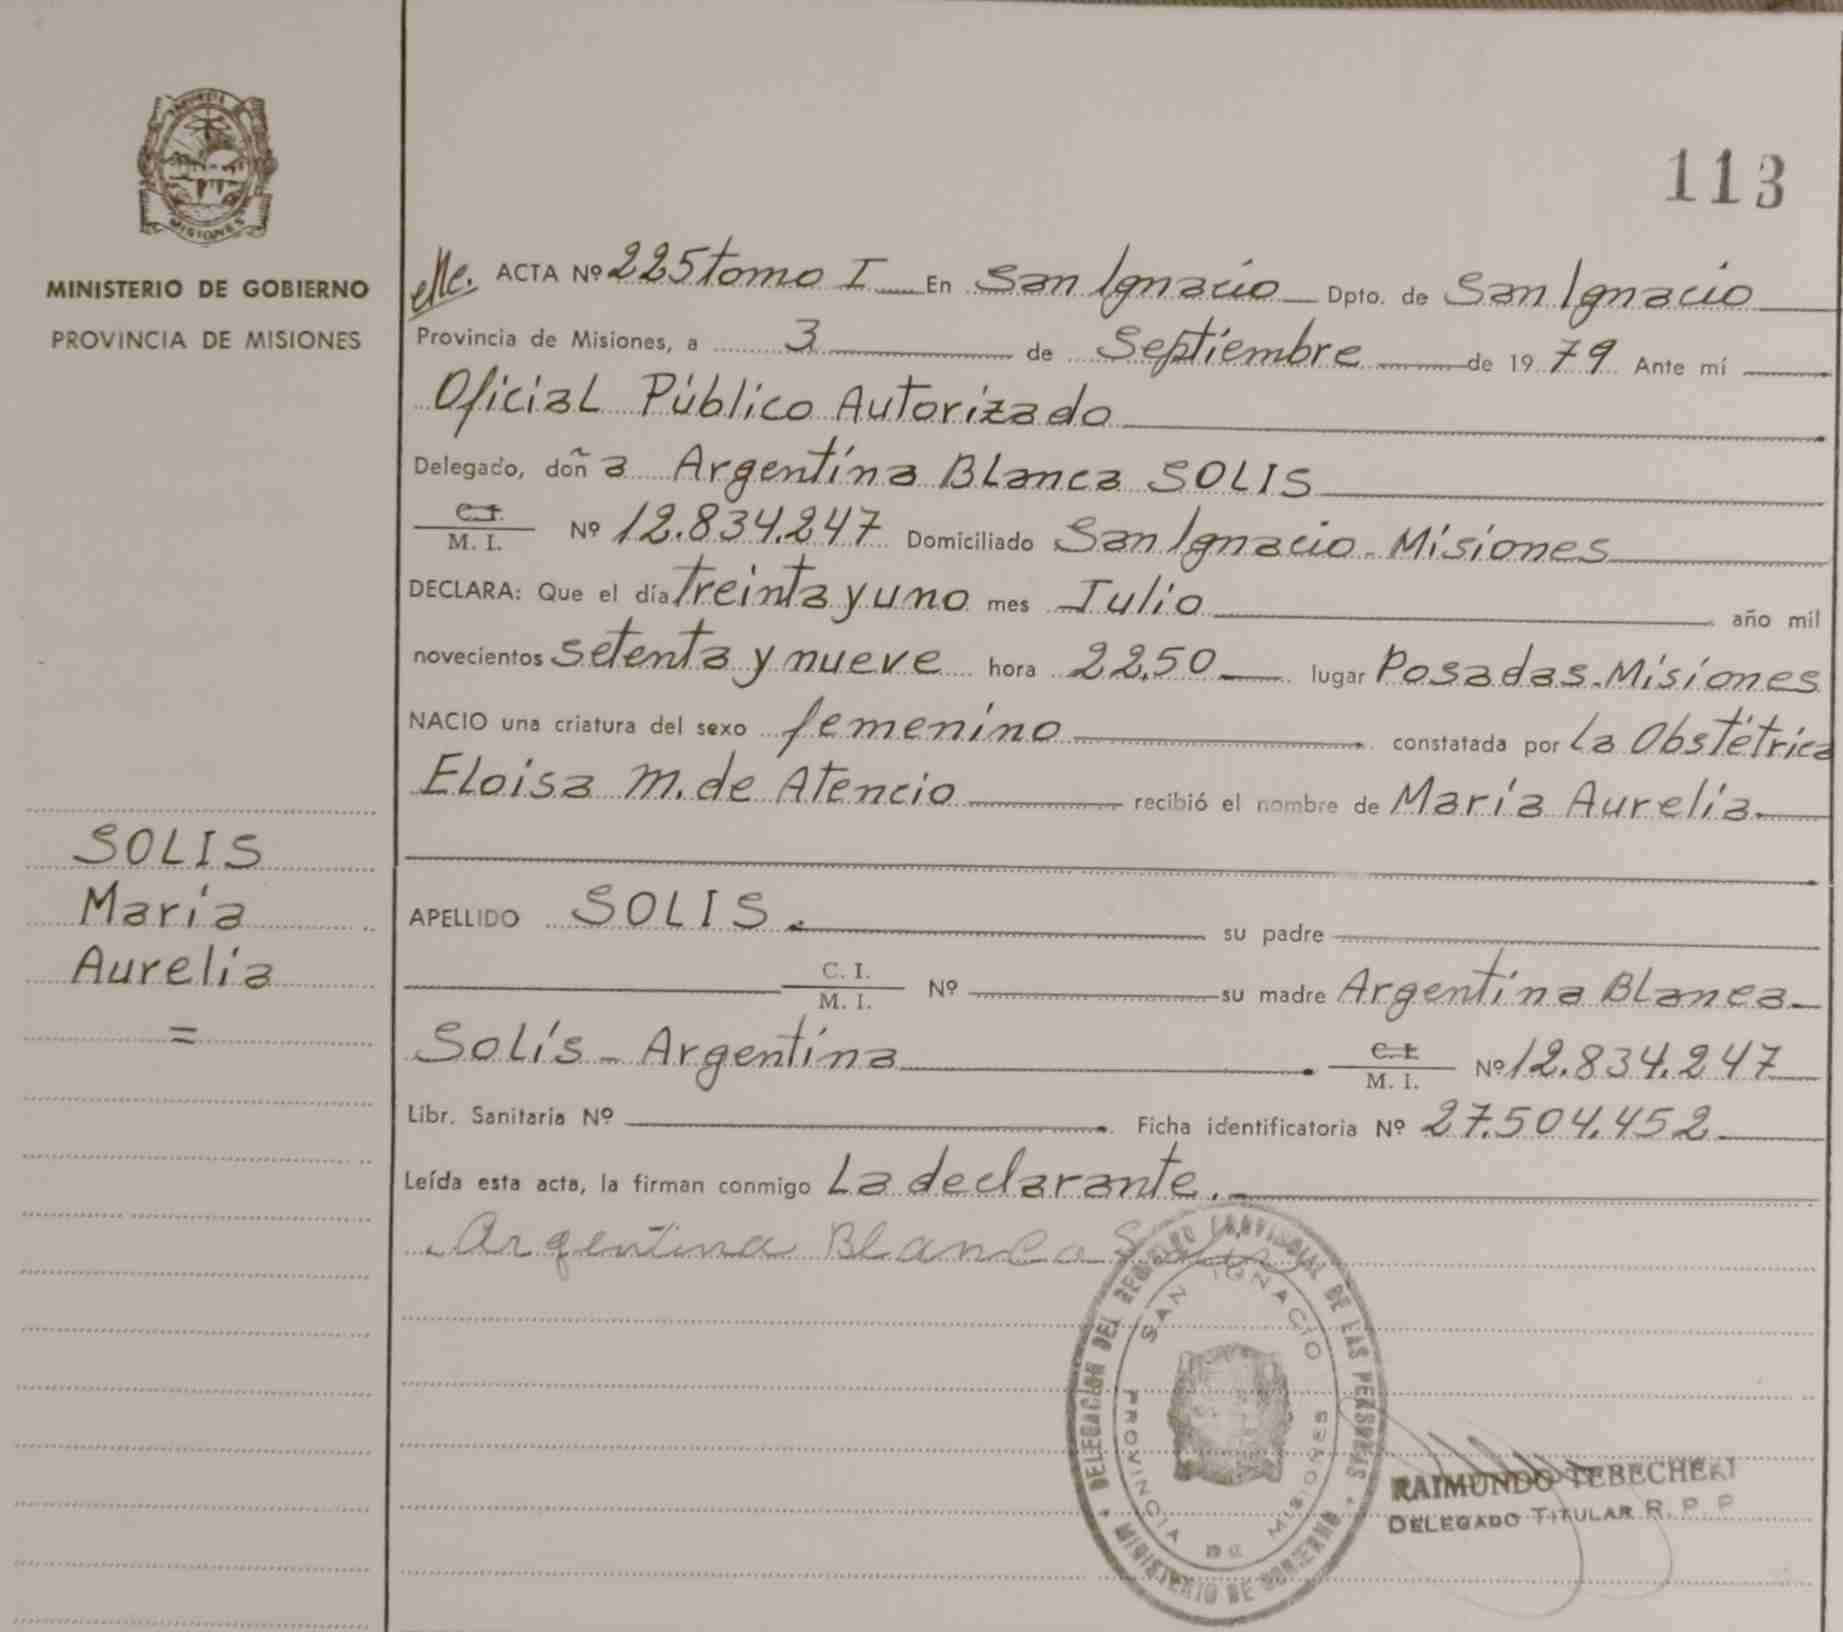 113
MISIONES
MINISTERIO DE GOBIERNO
PROVINCIA DE MISIONES
SOLIS
María
Aurelia
=
ACTA Nº 225 tomo I En San Ignacio Dpto. de San Ignacio
Provincia de Misiones, a 3 de Septiembre de 1979 Ante mí
Oficial Público Autorizado
Delegado, doña Argentina Blanca SOLIS
C.I.
M. I. Nº 12.834.247 Domiciliado San Ignacio. Misiones
DECLARA: Que el día treinta y uno mes Julio año mil
novecientos setenta y nueve hora 22,50 lugar Posadas. Misiones
NACIO una criatura del sexo femenino constatada por La Obstétrica
Eloisa M. de Atencio recibió el nombre de María Aurelia.
APELLIDO SOLIS. su padre
C. I.
M. I. Nº su madre Argentina Blanca
Solís - Argentina C.I.
M. I. Nº 12.834.247
Libr. Sanitaria Nº Ficha identificatoria Nº 27.504.452
Leída esta acta, la firman conmigo La declarante.
Argentina Blanca Solis
DELEGACIÓN DEL REGISTRO PROVINCIAL DE LAS PERSONAS
SAN IGNACIO
PROVINCIA DE MISIONES
MINISTERIO DE GOBIERNO
RAIMUNDO TEBECHERI
DELEGADO TITULAR R. P. P